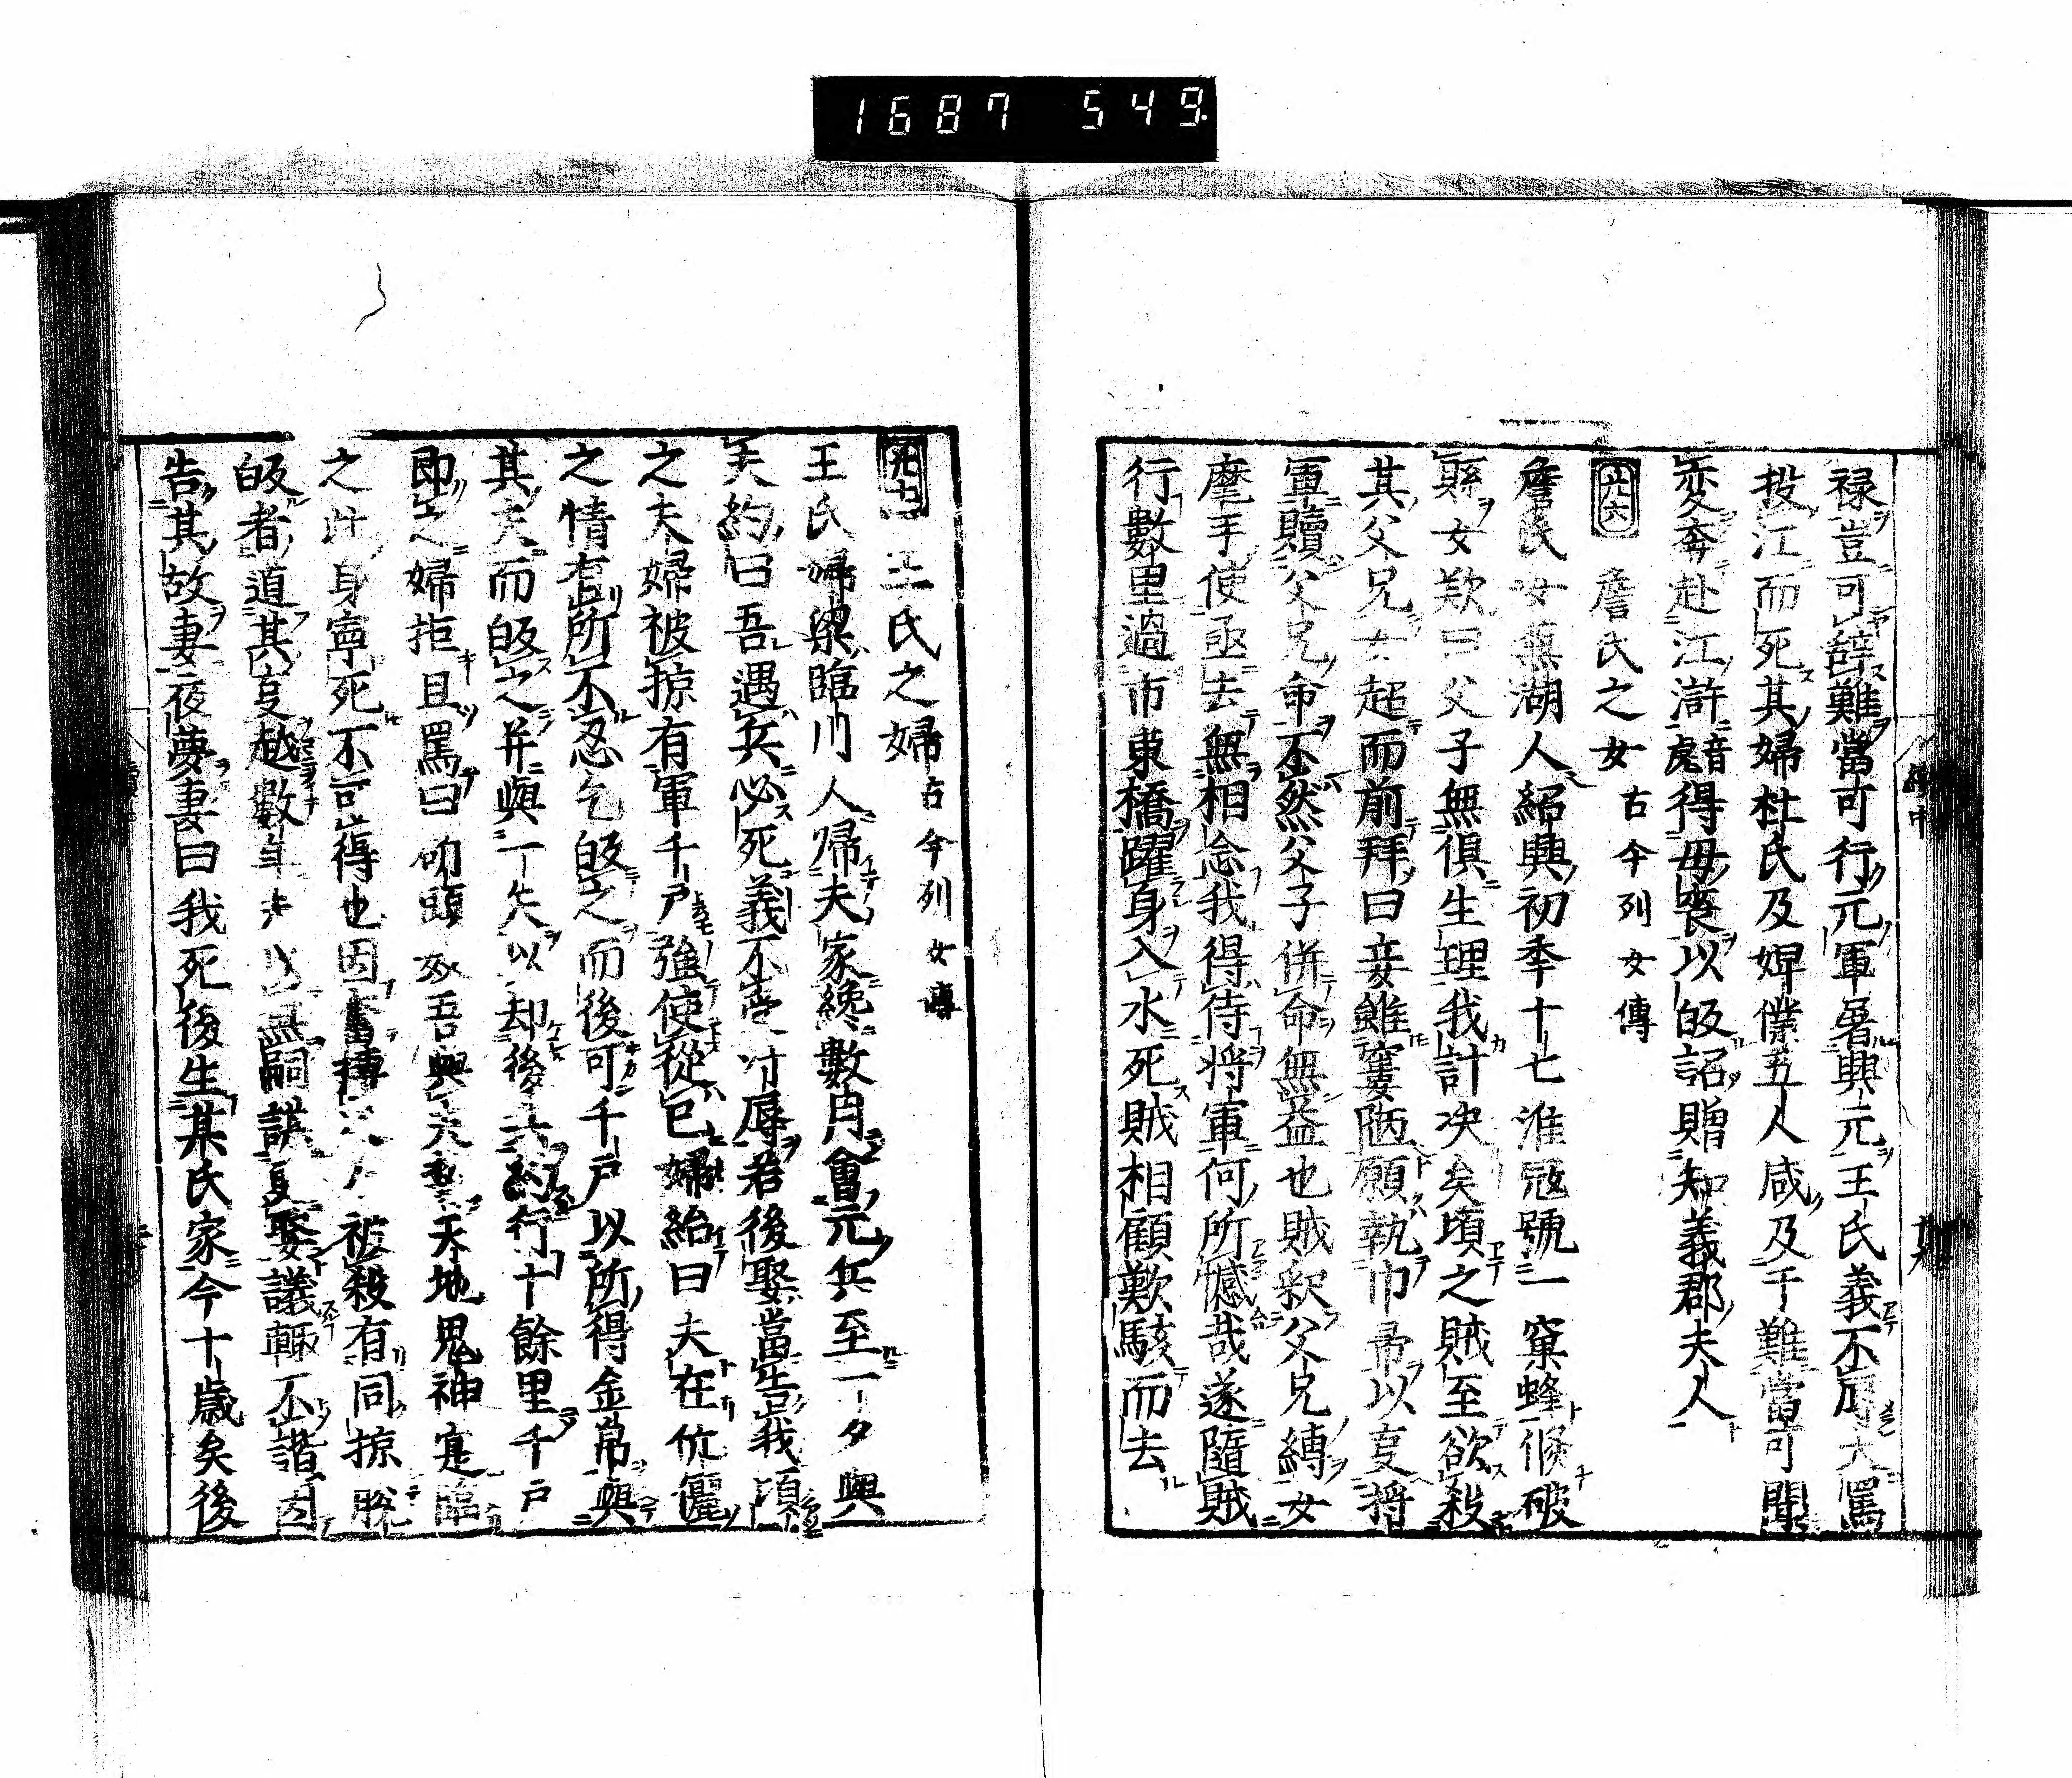 1687 549
禄豈可辞難當可行元軍畧興元王氏義不辱大罵
投江而死其婦杜氏及婢僕五人咸及于難當可聞
変奔赴江滸音虎得毋喪以皈詔贈知義郡夫人
八六 詹氏之女 古今列女傳
詹氏女蕪湖人紹興初季十七淮寇號一窠蜂倏破
縣女欺曰父子無俱生理我計决矣頃之賊至欲殺
其父兄女趍而前拜曰妾雖窶陋願執巾帚以叓将
軍贖父兄命不然父子併命無益也賊釈父兄縛女
麾手使亟去無相念我得侍将軍何所憾哉遂隨賊
行數里過市東橋躍身入水死賊相顧歎駭而去
王氏之婦 古今列女傳
王氏婦梁臨川人帰夫家纔數月會元兵至一夕與
夫約曰吾遇兵必死義不受汙辱若後娶當告我頃
之夫婦被掠有軍千戶強使從已婦紿曰夫在伉儷
之情有所不忍乞皈之而後可千戶以所得金帛與
其夫而皈之并與一矢以却後兵約行十餘里千戶
即之婦拒且罵曰斫頭奴吾與夫誓天地鬼神寔臨
之此身寧死不可得也因奮搏 被殺有同掠脫
皈者道其叓越數年夫以無嗣謀叓娶議輙不諧因
告其故妻夜夢妻曰我死後生某氏家今十歳矣後